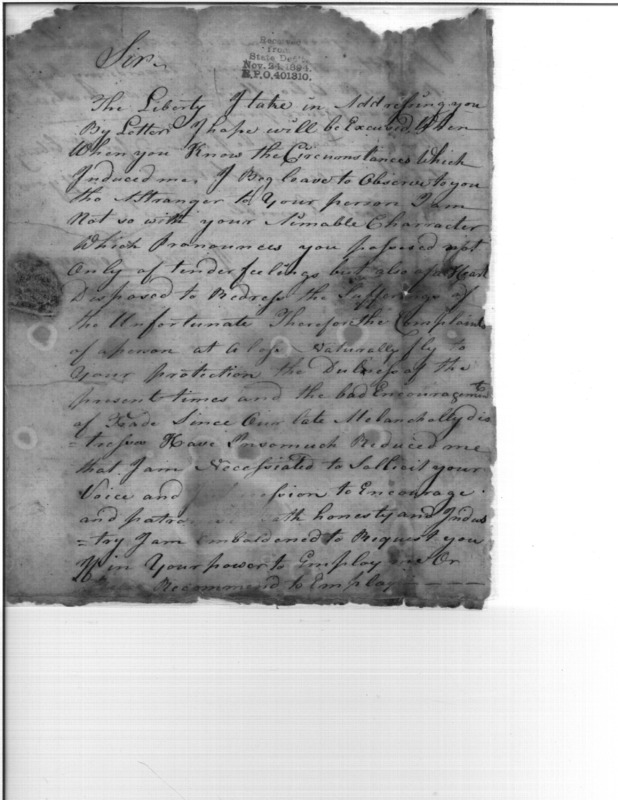 Sir
Received
from
State Dept.
Nov. 24, 1894.
R.P.O. 401310.
The Liberty I take in Addressing you
By Letter I hope will be Excused, When
When you Know the Circumstances Which
Induced me, I Beg leave to Observe to you
tho A Stranger to Your person I am
Not so with your Aimable Character
Which Pronounces you possessed not
Only of tender feelings but also of a Heart
Disposed to Redress the Sufferings of
the Unfortunate Therefore the Complaints
of a person at a loss Naturally fly to
Your Protection the Dulness of the
present times and the bad Encouragement
of Trade Since Our late Melancholly dis
=tresses Have Insomuch Reduced me
that I am Necessiated to Sollicit your
Voice and to Encourage
and honesty and Indus
=try I am Emboldened to Request you
If in Your power to Employ me Or
Recommend to Employ